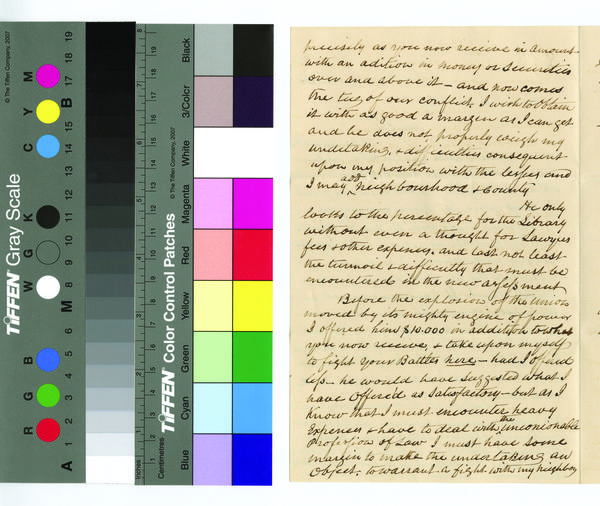 © The Tiffen Company, 2007
TIFFEN Gray Scale
R G B W G K C Y M
A 1 2 3 4 5 6 M 8 9 10 11 12 13 14 15 B 17 18 19
Inches
Centimetres
TIFFEN Color Control Patches
© The Tiffen Company, 2007
Blue
Cyan
Green
Yellow
Red
Magenta
White
3/Color
Black
precisely as you now receive in amount
with an adition in money or Securities
over and above it — and now comes
the tug of our conflict I wish to obtain
it with as good a margin as I can get
and he does not properly weigh my
undertaking, & difficulties consequent
upon my position with the lessees and
I may add Neighbourhood & County
He only
looks to the percentage for the Library
without even a thought for Lawyers
fees & other expenses, and last not least
the turmoil & difficulty that must be
encountered in the new assessment
Before the explosion of the Union
moved by its mighty engine of power
I offered him $10.000 in addition to what
you now receive, & take upon myself
to fight your Battles here — had I offered
less he would have suggested what I
have offered as Satisfactory — but as I
Know that I must encounter heavy
Expences & have to deal with the unconscionable
Profession of Law I must have some
margin to make the undertaking an
Object, to warrant a fight with my neighbor